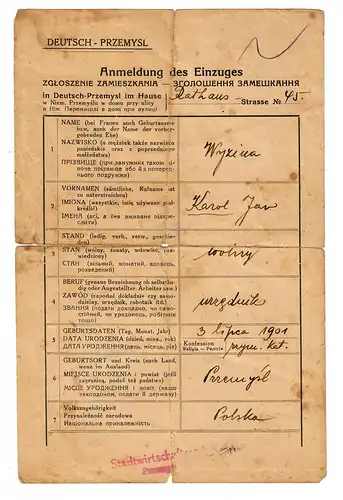 DEUTSCH - PRZEMYSL
Anmeldung des Einzuges
ZGŁOSZENIE ZAMIESZKANIA — ЗГОЛОШЕННЯ ЗАМЕШКАННЯ
in Deutsch-Przemysl im Hause Rathaus Strasse № 45
w Niem. Przemyślu w domu przy ulicy
в Нім. Перемишлі в домі при улиці
1
NAME (bei Frauen auch Geburtsname
bzw. auch der Name der vorher-
gehenden Ehe)
NAZWISKO (u mężatek także nazwisko
panieńskie oraz z poprzedniego
małżeństwa)
ПРІЗВИЩЕ (при замужних також ді-
воче прізвище або й з поперед-
нього подружжя)
2
VORNAMEN (sämtliche, Rufname ist
zu unterstreichen)
IMIONA (wszystkie, imię używane pod-
kreślić)
ІМЕНА (всі, а їмя вживане підкрес-
лити)
Karol Jan
3
STAND (ledig, verh., verw., geschie-
den)
STAN (wolny, żonaty, wdowiec, roz-
wiedziony)
СТАН (вільний, жонатий, вдовець,
розведений)
wolny
4
BERUF (genaue Bezeichnung ob selbstän-
dig oder Angestellter, Arbeiter usw.)
ZAWÓD (podać dokładnie czy samo-
dzielny, urzędnik, robotnik itd.)
ЗВАННЯ (подати докладно, чи само-
стійний, чи урядовець, робітник і т. д.)
urzędnik
5
GEBURTSDATEN (Tag, Monat, Jahr)
DATA URODZENIA (dzień, mies., rok)
ДАТА УРОДЖЕННЯ (день, місяць, рік)
3 lipca 1901
Konfession
Religia - Релігія
rzym. kat.
6
GEBURTSORT und Kreis (auch Land,
wenn im Ausland)
MIEJSCE URODZENIA i powiat (jeśli
zagranicą, podać też państwo)
МІСЦЕ УРОДЖЕННЯ і повіт (якщо
закордоном, подати й державу)
Przemyśl
7
Volkszugehörigkeit
Przynależność narodowa
Національна приналежність
Polska